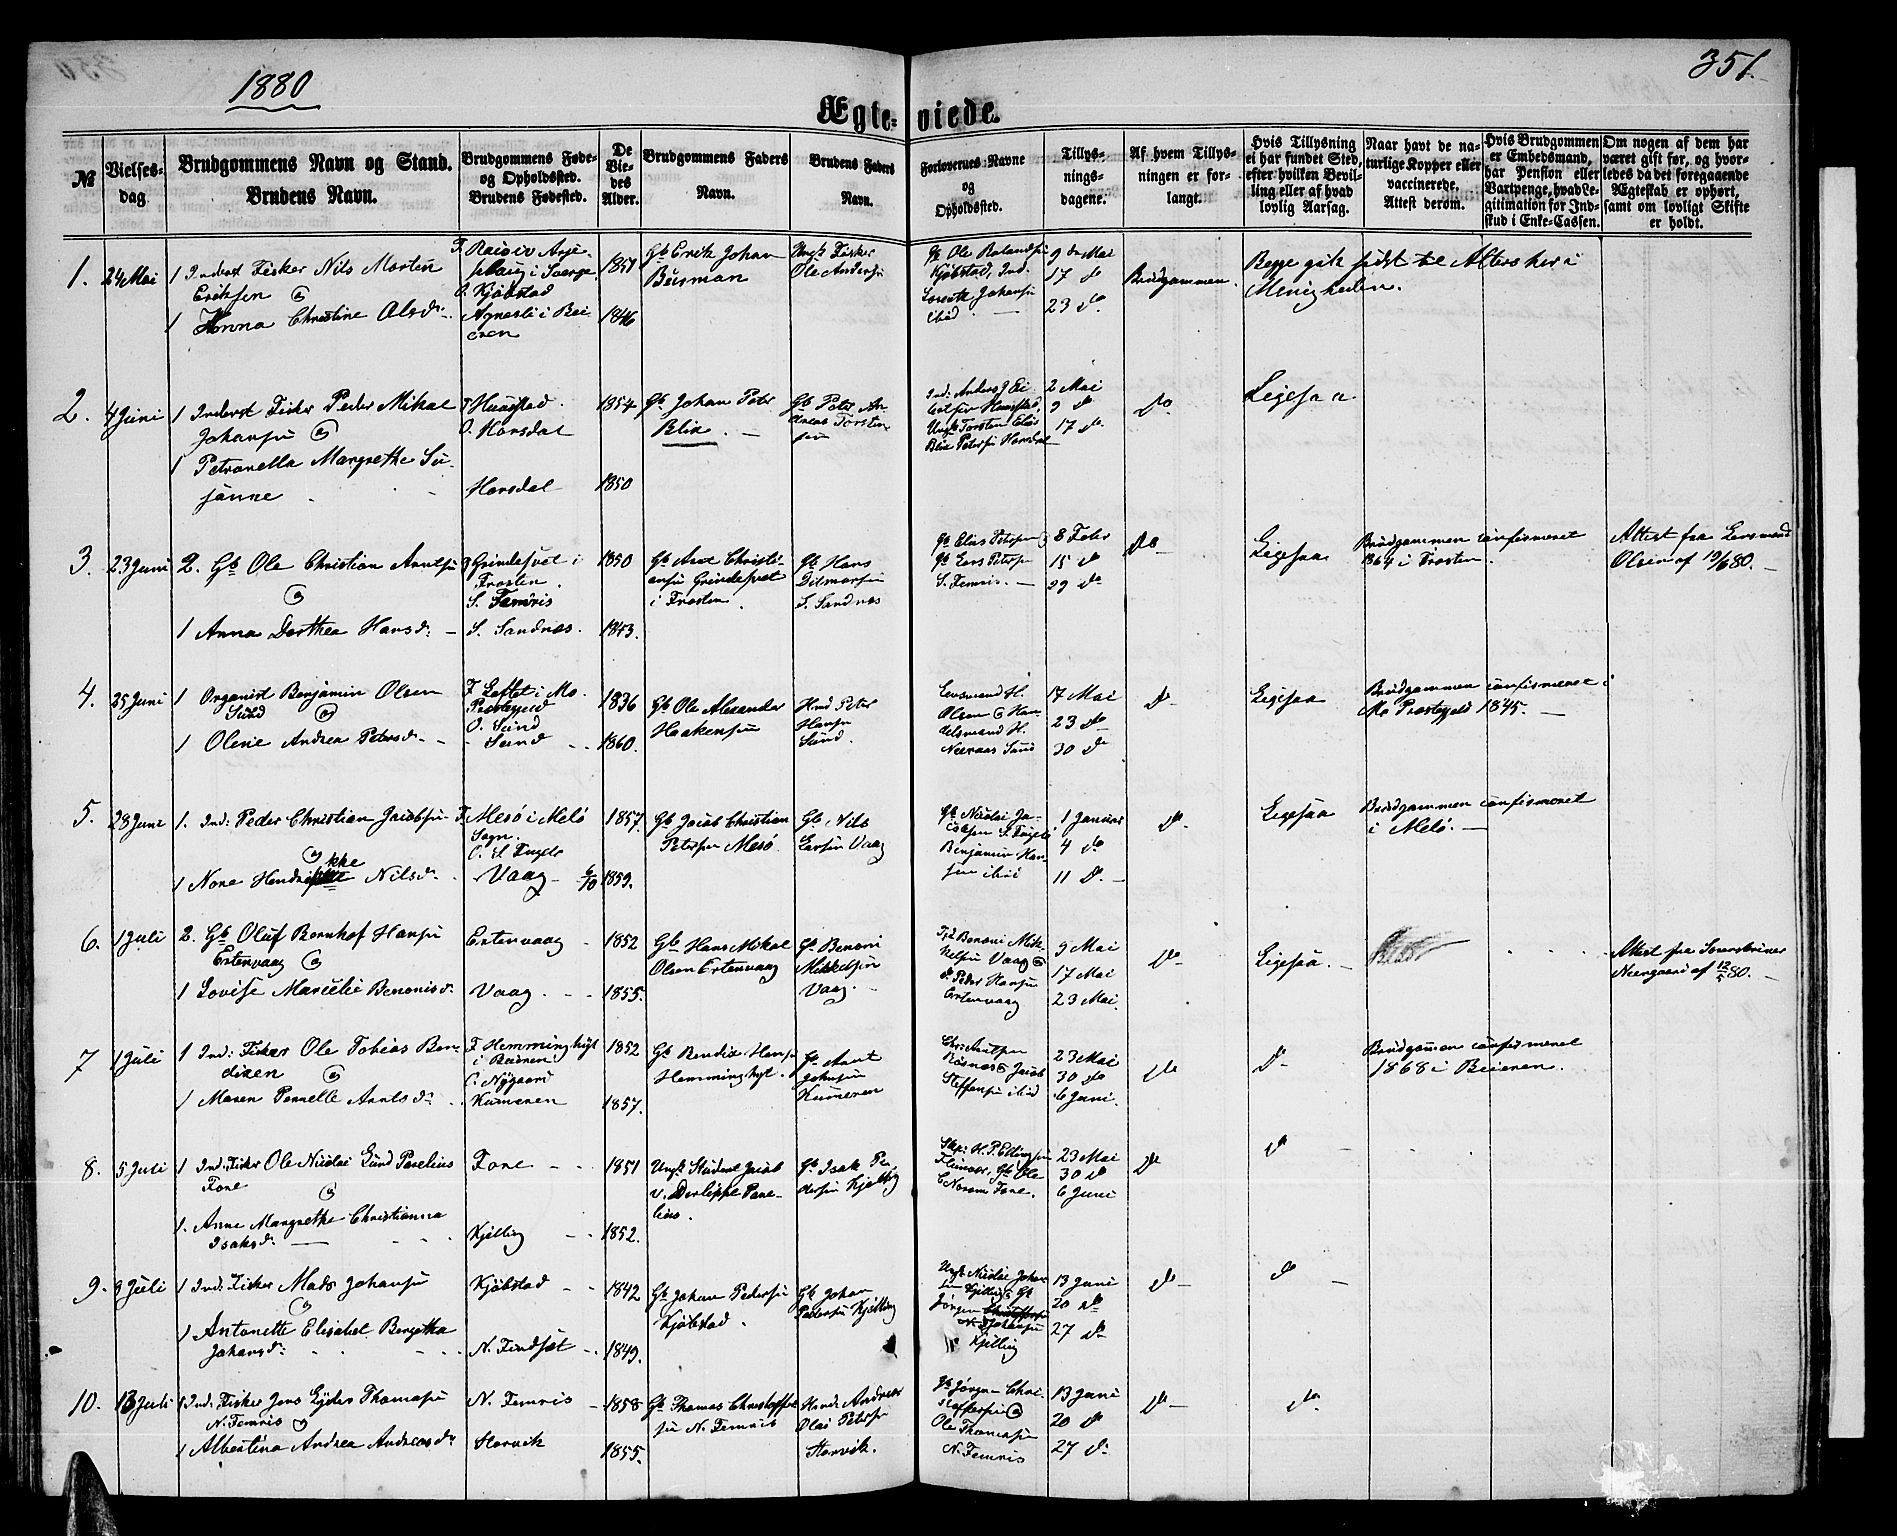 1880
351.
Ægte-viede.
№
Vielses-dag
Brudgommens Navn og Stand.
Brudens Navn.
Brudgommens Føde-
og Opholdssted.
Brudens Fødested.
De
Vie-
des
Alder.
Brudgommens Faders
Navn.
Brudens Faders
Navn.
Forlovernes Navne
og
Opholdssted.
Tillys-
nings-
dagene.
Af hvem Tillys-
ningen er for-
langt.
Hvis Tillysning
ei har fundet Sted,
efter hvilken Bevil-
ling eller af hvad
lovlig Aarsag.
Naar havt de na-
turlige Kopper eller
vaccinerede.
Attest derom.
Hvis Brudgommen
er Embedsmand,
har Pension eller
Vartpenge, hvad Le-
gitimation for Ind-
skud i Enke-Cassen.
Om nogen af dem har
været gift før, og hvor-
ledes da det foregaaende
Ægteskab er ophørt,
samt om lovligt Skifte
er holdt.
1. 24 Mai
1 Inderst Fisker Nils Morten
Eriksen &
1 Hanna Christine Olsd.
O. Kjøbstad
Agnesli i Bei-
eren
1851
1846
Gb. Erik Johan
Burman
Ungk. Fisker
Ole Andersen
Kjøbstad, Ind.
ibid
9de Mai
17 do
23 do
Brudgommen.
Begge gik sidst til Alters her i
Menigheden.
2. 4 Juni
1 Inderst Fisker Peder Mikal
Johansen &
1 Petronella Margrethe Su-
sanne
O. Horsdal
Horsdal
1854
1850
Gb. Johan Peter
Blix
Gb. Peter An-
dreas Torsten-
sen
2 Mai
9 do
17 do
Do
Ligesaa
3. 23 Juni
2. Gb. Ole Christian Arntsen
&
1 Anna Dorthea Hansd.
F. Grindesvet i
Trosten.
S. Femris
S. Sandnes.
1850
1843.
Gb. Arnt Christi-
ansen Grindesvet
i Trosten.
Gb. Hans
Ditmarsen
S. Sandnes
Gb. Elias Petersen &
Gb. Lars Petersen
S. Femris
8 Febr
15 do
22 do
Do
Ligesaa
Brudgommen confirmeret
1864 i Trosten.
Attest fra Lensmand
Olsen af 19/6 80.
4. 25 Juni
1 Organist Benjamin Olsen
Sund &
1 Oline Andrea Petersd.
F. Leftet i Mo
Præstegjeld
O. Sund
Sund
1836
1860.
Gb. Ole Alexander
Haakensen
Hmd. Peter
Hansen
Sund.
Lensmand H.
Olsen & Han-
delsmand H.
17 Mai
23 do
30 do
Do
Ligesaa
Brudgommen confirmeret i
Mo Præstegjeld 1845.
5. 28 Juni
1. Ind: Peder Christian Jacobsen
&
1 Hendrikke Nilsd.
F. Mesø i Melø
Sogn.
Vaag 6/10
1857.
1859.
Gb. Jacob Christian
Petersen Mesø
Gb. Nils
Larsen Vaag
Gb. Nicolai Ja-
cobsen
Benjamin Han-
sen ibid
1 Januar
4 do
11 do
Do
Ligesaa
Brudgommen confirmeret
i Melø.
6. 1 Juli
2. Gb. Oluf Bernhof Hansen
Ertenvaag &
1 Lovise Benonisd.
Ertenvaag
Vaag.
1852
1855.
Gb. Hans Mikal
Olsen Ertenvaag
Gb. Benoni
Mikkelsen
Vaag.
Benoni Mik-
kelsen Vaag &
do Peder Hansen
Ertenvaag
9 Mai
17 Mai
23 Mai
Do
Ligesaa.
Attest fra Sorenskriver
Neergaard af 80.
7 1 Juli
1 Ind: Fisker Ole Tobias Ben-
dixen &
1 Maren Pernelle Arntsd.
F. Hemminghyt
i Beieren
O. Nygaard
Kumeren
1852
1857.
Gb. Bendix Hansen
Hemminghyt.
Gb. Arnt
Johnsen
Kumeren
Chr: Arntsen
& Jacob
Steffensen ibid
23 Mai
30 do
6 Juni.
do
do
Brudgommen confirmeret
1868 i Beieren.
8. 5 Juli
1 Ind: Fisker Ole Nicolai Lund Parelius
Fore
&
1. Anne Margrethe Christianna
Isaksd.
Fore
Kjelling
1851
1852.
Ungk. Student Jacob
v. Derlippe Pare-
lius.
Gb. Isak Pe-
dersen Kjelling
Fore.
23 Mai
30 do
6 Juni
do
do
9. 9 Juli
1 Ind: Fisker Mads Johansen
&
1 Antonette Elisabet Bergitha
Johansd.
Kjøbstad
N. Findset
1842
1849.
Gb. Johan Pedersen
Kjøbstad.
Gb. Johan
Pedersen Kjelling
Ungk. Nicolai Johan-
sen Kjelling & Gb.
Jørgen Christoffersen
Johansen
Kjelling
13 Juni
20 do
27 do
do
do
10. 13 Juli
1 Ind: Fisker Jens Lyder Thomasen
N. Femris &
1 Albertina Andrea Andreasd.
N. Femris
Storvik
1858
1855.
Gb. Thomas Christoffer-
sen N. Femris
Hmd: Andreas
Olai Petersen
Storvik.
Gb. Jørgen Chri-
stoffersen &
Ole Thomasen
N. Femris
13 Juni
20 do
27 do
do
do